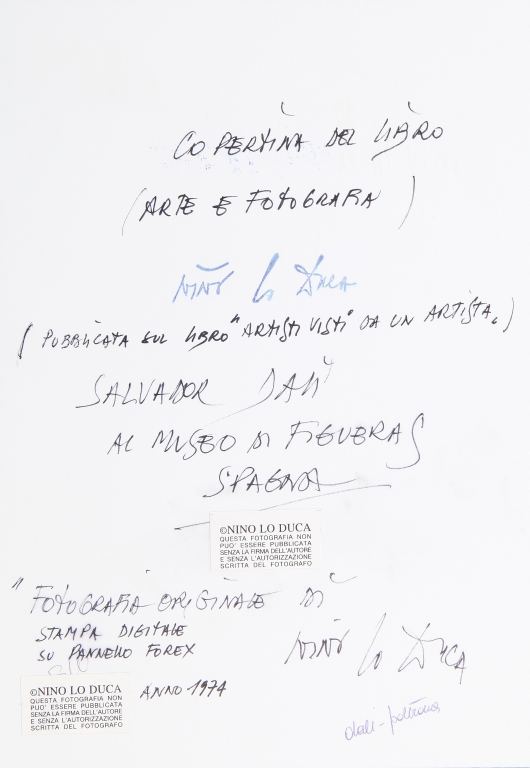 COPERTINA DEL LIBRO
(ARTE E FOTOGRAFIA)
NINO Lo DUCA
(PUBBLICATA SUL LIBRO "ARTISTI VISTI" DA UN ARTISTA.)
SALVADOR DALÌ
AL MUSEO DI FIGUERAS
SPAGNA
©NINO LO DUCA
QUESTA FOTOGRAFIA NON
PUO' ESSERE PUBBLICATA
SENZA LA FIRMA DELL'AUTORE
E SENZA L'AUTORIZZAZIONE
SCRITTA DEL FOTOGRAFO
"FOTOGRAFIA ORIGINALE DI"
STAMPA DIGITALE
SU PANNELLO FOREX
NINO Lo DUCA
©NINO LO DUCA
QUESTA FOTOGRAFIA NON
PUO' ESSERE PUBBLICATA
SENZA LA FIRMA DELL'AUTORE
E SENZA L'AUTORIZZAZIONE
SCRITTA DEL FOTOGRAFO
ANNO 1974
dali-poltrona